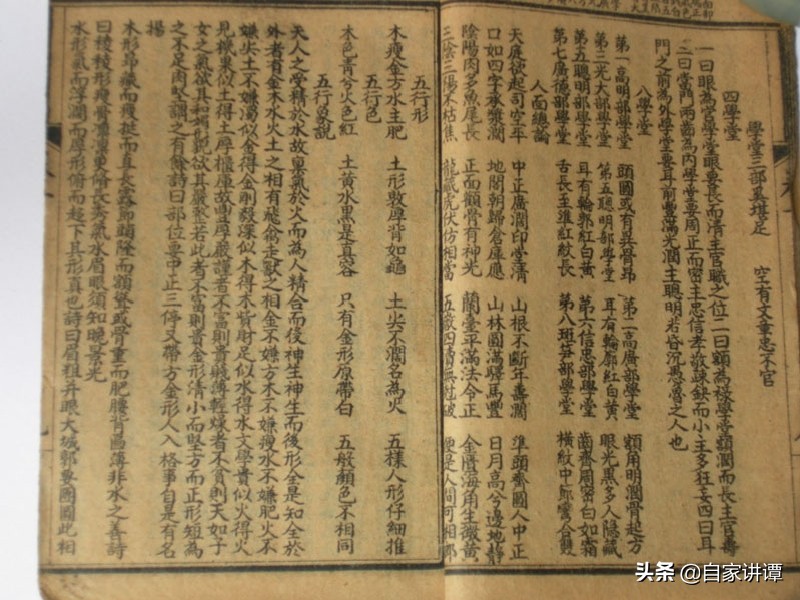 學堂三部奚堪足　空有文章恐不官
四學堂
一曰眼為官學堂眼要長而清主官職之位二曰額為祿學堂額闊而長主官壽
三曰當門兩齒為內學堂要周正而密主忠信孝敬疎缺而小主多狂妄四曰耳
門之前為外學堂要耳前豐滿光潤主聰明若昏沉愚魯之人也
八學堂
第一高明部學堂　頭圓或有異骨昂　第二高廣部學堂　額角明潤骨起方
第三光大部學堂
耳有輪廓紅白黃　眼光黑多人隱藏
第五聰明部學堂　耳有輪郭紅白黃　第六信忠部學堂　齒齊周密白如霜
第七廣德部學堂　舌長至准紅紋長　第八班笋部學堂　橫紋中節彎合雙
人面總論
天庭欲起司空平　中正廣濶印堂清　山根不斷年壽潤　準頭齊圓人中正
口如四字承漿濶　地閣朝歸倉庫應　山林圓滿驛馬豐　日月高兮邊地靜
陰陽肉多魚尾長　正面顴骨有神光　蘭臺平滿法令正　金匱海角生微黃
三陰三陽不枯焦　龍藏虎伏仿相當　五嶽四瀆無冠破　便是人間可相郎
五行形
木瘦金方水主肥　土形敦厚背如龜　土尖下濶名為火　五樣人形仔細推
五行色
木色青兮火色紅　土黃水黑是真容　只有金形原帶白　五般顏色不相同
五行象說
天人之受精於水故稟氣於火而為人精合而後神生神生而後形全是知全於
外者有金木水火土之相有飛禽走獸之相金不嫌方木不嫌瘦水不嫌肥火不
嫌尖土不嫌濁似金得金剛毅深似木得木貲財足似水得水文學貴似火得火
見機果似土得土厚櫃庫故豐厚嚴謹者不富則貴賤薄輕燥者不貧則夭如子
女之氣欲其和媚形貌欲其嚴整若此者不富則貴金形清小而堅方而正形短為
之不足肉堅謂之有餘詩曰部位要中正三停又帶方金形人入格事自是有名
揚
木形昻藏而瘦挺而直長露節頭隆而額聳或骨重而肥腰背匾薄非木之善詩
曰稜稜形瘦骨凜凜更修長秀氣水眉眼須知晚景光
水形氣而浮濶而厚形俯而趨下其形真也詩曰眉粗并眼大城郭要團圓此相
头条 @自家讲谭